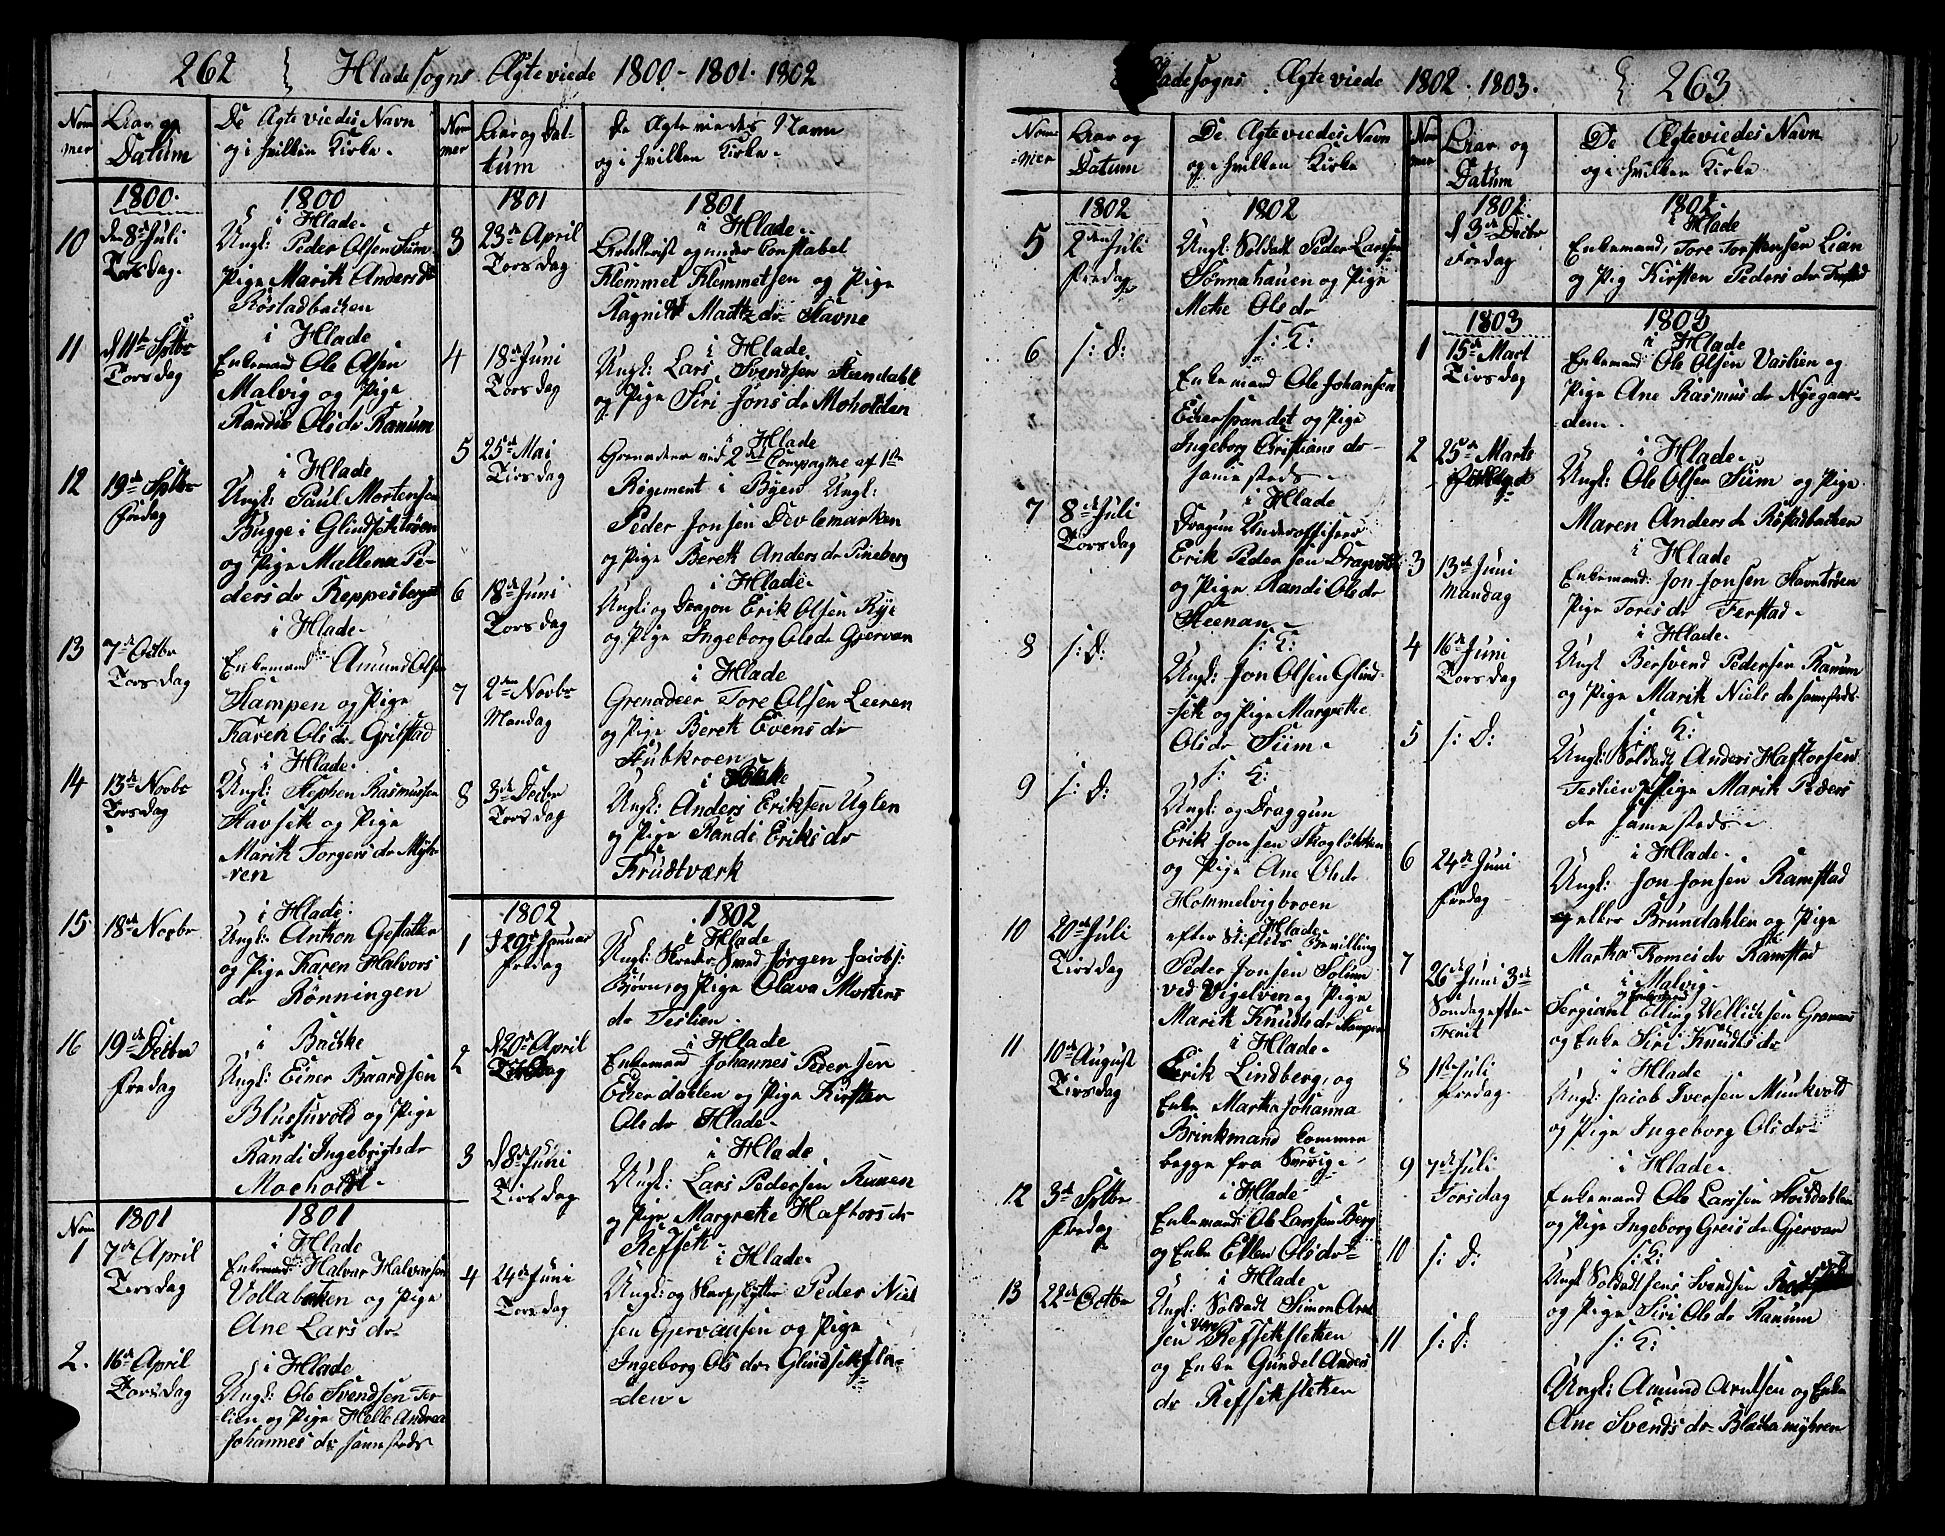 262 Hlade Sogns Ægteviede 1800 - 1801. 1802
Nom
mer
Aar og
Datum
De Ægteviedes Navn
og i hvilken Kirke.
1800.
1800
i Hlade.
10 den 8de Juli
Torsdag.
Ungk: Peder Olsen Siim
Pige Marit Andersdr
Rostadbacken
i Hlade
11 d 11te Sptbr
Torsdag
Enkemand Ole Olsen
Malvig og Pige
Randie Olsdr Ranum
i Hlade
12 19de Sptbr
Fredag
Ungk: Paul Mortensen
Bugge i Glindsetstrøen
og Pige Mællena Pe-
dersdr Reppesberget
i Hlade.
13 7de Octbr
Torsdag
Enkemand Amund Olsen
Stampen og Pige
Karen Olsdr Grilstad
i Hlade.
14 13de Novbr
Torsdag
Ungk: Stephen Rasmussen
Havsett og Pige
Marit Torgersdr Myh-
ren
i Hlade.
15 18de Novbr
Ungk: Anton Gestatter
og Pige Karen Halvors
dr Rönningen
i Bratske
16 19de Decbr
Fredag
Ungk: Einer Baardsen
Blussuvold og Pige
Randi Ingebrigtsdr
Moeholt.
Nom 1801
1801
i Hlade
1 7de April
Torsdag
Enkemand Halvor Halvorsen
Vollabacken og Pige
Ane Larsdr
i Hlade
2. 16de April
Torsdag
Ungk: Ole Svendsen Tes-
lien og Pige Helle Andrea
Johannesdr sammesteds
Nom
mer
Aar og Da-
tum
De Ægteviedes Navn
og i hvilken Kirke.
1801
1801
i Hlade.
3 23de April
Torsdag
Artellerist og under Constabel
Klemmet Klemmetsen og Pige
Ragnild Madtzdr Stavne
i Hlade
4 18de Juni
Torsdag
Ungk: Lars Svendsen Steendahl
og Pige Siri Jonsdr Moholdan
i Hlade
5 25de Mai
Tirsdag
Grenadeer ved 2det Compagne af 1ste
Regement i Byen Ungk:
Peder Jonsen Devlemarken
og Pige Berett Andersdr Pineberg
i Hlade.
6 18de Juni
Torsdag
Ungk: og Dragon Erik Olsen Rye
og Pige Ingeborg Olsdr Gjervan
i Hlade
7 2den Novbr
Mandag
Grenadeer Tore Olsen Leeren
og Pige Berett Evensdr
Stubkroen
i Hlade
8 3de Decbr
Torsdag
Ungk: Anders Eriksen Uglen
og Pige Randi Eriksdr
Krudtværk
1802
1802
i Hlade
1 d 29de Januar
Fredag
Ungk: Skreder Svend Jörgen Jacobs:
Björn, og Pige Olava Mortens
dr Teslien.
i Hlade
2 d 20de April
Tirsdag
Enkemand Johannes Pedersen
Eiserdahlen og Pige Kirsten
Olsdr Hlade.
i Hlade
3 d 8de Juni
Tirsdag
Ungk: Lars Pedersen Runen
og Pige Margrete Haftorsdr
Refsett.
i Hlade.
4 24de Juni
Torsdag
Ungk: og Skarpskytter Peder Niel
sen Gjervansen og Pige
Ingeborg Olsdr Glindsetsla-
den
Hlade Sogns Ægteviede 1802. 1803. 263
Nom
mer
Aar og
Datum
De Ægteviedes Navn
og i hvilken Kirke
1802
1802
i Hlade
5 2den Juli
Fredag
Ungk: Soldadt Peder Larssen
Sönnahauen og Pige
Mette Olsdr
s: K:
6 s: D:
Enkemand Ole Johansen
Eckersspandet og Pige
Ingeborg Cristiansdr
samesteds.
i Hlade
7 8de Juli
Torsdag
Dragun Underofficeer
Erik Pedersen Dragvold
og Pige Randi Olsdr
Steenan.
s: K:
8 s: D:
Ungk: Jon Olsen Glind-
sett og Pige Margrette
Olsdr Siim.
s: K:
9 s: D:
Ungk: og Draggun
Erik Jonsen Skogløkken
og Pige Ane Olsdr
Hommelvigbroen
i Hlade.
10 20de Juli
Tirsdag
efter Stiftets Bevilling
Peder Jonsen Solum
ved Vigelven og Pige
Marit Knudsdr Stampen
i Hlade.
11 10de August
Tirsdag
Erik Lindberg, og
Enke Marta Johanna
Brinkmand Commen
begge fra Sverig.
i Hlade
12 3de Sptbr
Fredag
Enkemand Ole Larssen Berg
og Enke Ellen Olsdr
i Hlade
13 22de Octbr
Ungk: Soldadt Simon Arnt
sen Refsetsletten
og Enke Gundel Anders
dr Refsetsletten
Nom
mer
Aar og
Datum
De Ægteviedes Navn
og i hvilken Kirke
1802
1802
i Hlade
d 3de Decbr
Fredag
Enkemand, Tore Torstensen Lian
og Pig Kirsten Pedersdr Ferstad
1803
1803
i Hlade
1 15de Mart
Tirsdag
Enkemand Ole Olsen Vaslien og
Pige Ane Rasmusdr Nyegaar-
den.
i Hlade.
2 25de Marts
Ungk: Ole Olsen Siim og Pige
Maren Andersdr Rostadbacken
i Hlade
3 13de Juni
Mandag
Enkemand: Jon Jonsen Stavnetrøen
Pige Torisdr Ferstad.
i Hlade.
4 16de Juni
Torsdag
Ungk Bersvend Pedersen Ranum
og Pige Marit Nielsdr samesteds.
s: K:
5 s: D:
Ungk: Soldadt Anders Haftorsen
Teslien Pige Marit Peders
dr samesteds.
i Hlade.
6 24de Juni
Fredag
Ungk: Jon Jonsen Ramstad
eller Brundahlen og Pige
Martha Tomesdr Ramstad
i Malvig.
7 26de Juni 3de
Söndag efter
Trenit
Sergiant Elling Wellichsen Gramnes
og Enke Siri Knudsdr
i Hlade
8 1ste Juli
Fredag.
Ungk: Jacob Iversen Munkvold
og Pige Ingeborg Olsdr
i Hlade.
9 7de Juli
Torsdag
Enkemand Ole Larssen Stoksdahlen
og Pige Ingeborg Greisdr Gjervan
s: K:
10 s: D:
Ungk Soldadt Jens Svendsen
og Pige Siri Olsdr Ranum
s: K:
11 s: D:
Ungk: Amund Arntsen og Enke
Ane Svendsdr Blackamyhren